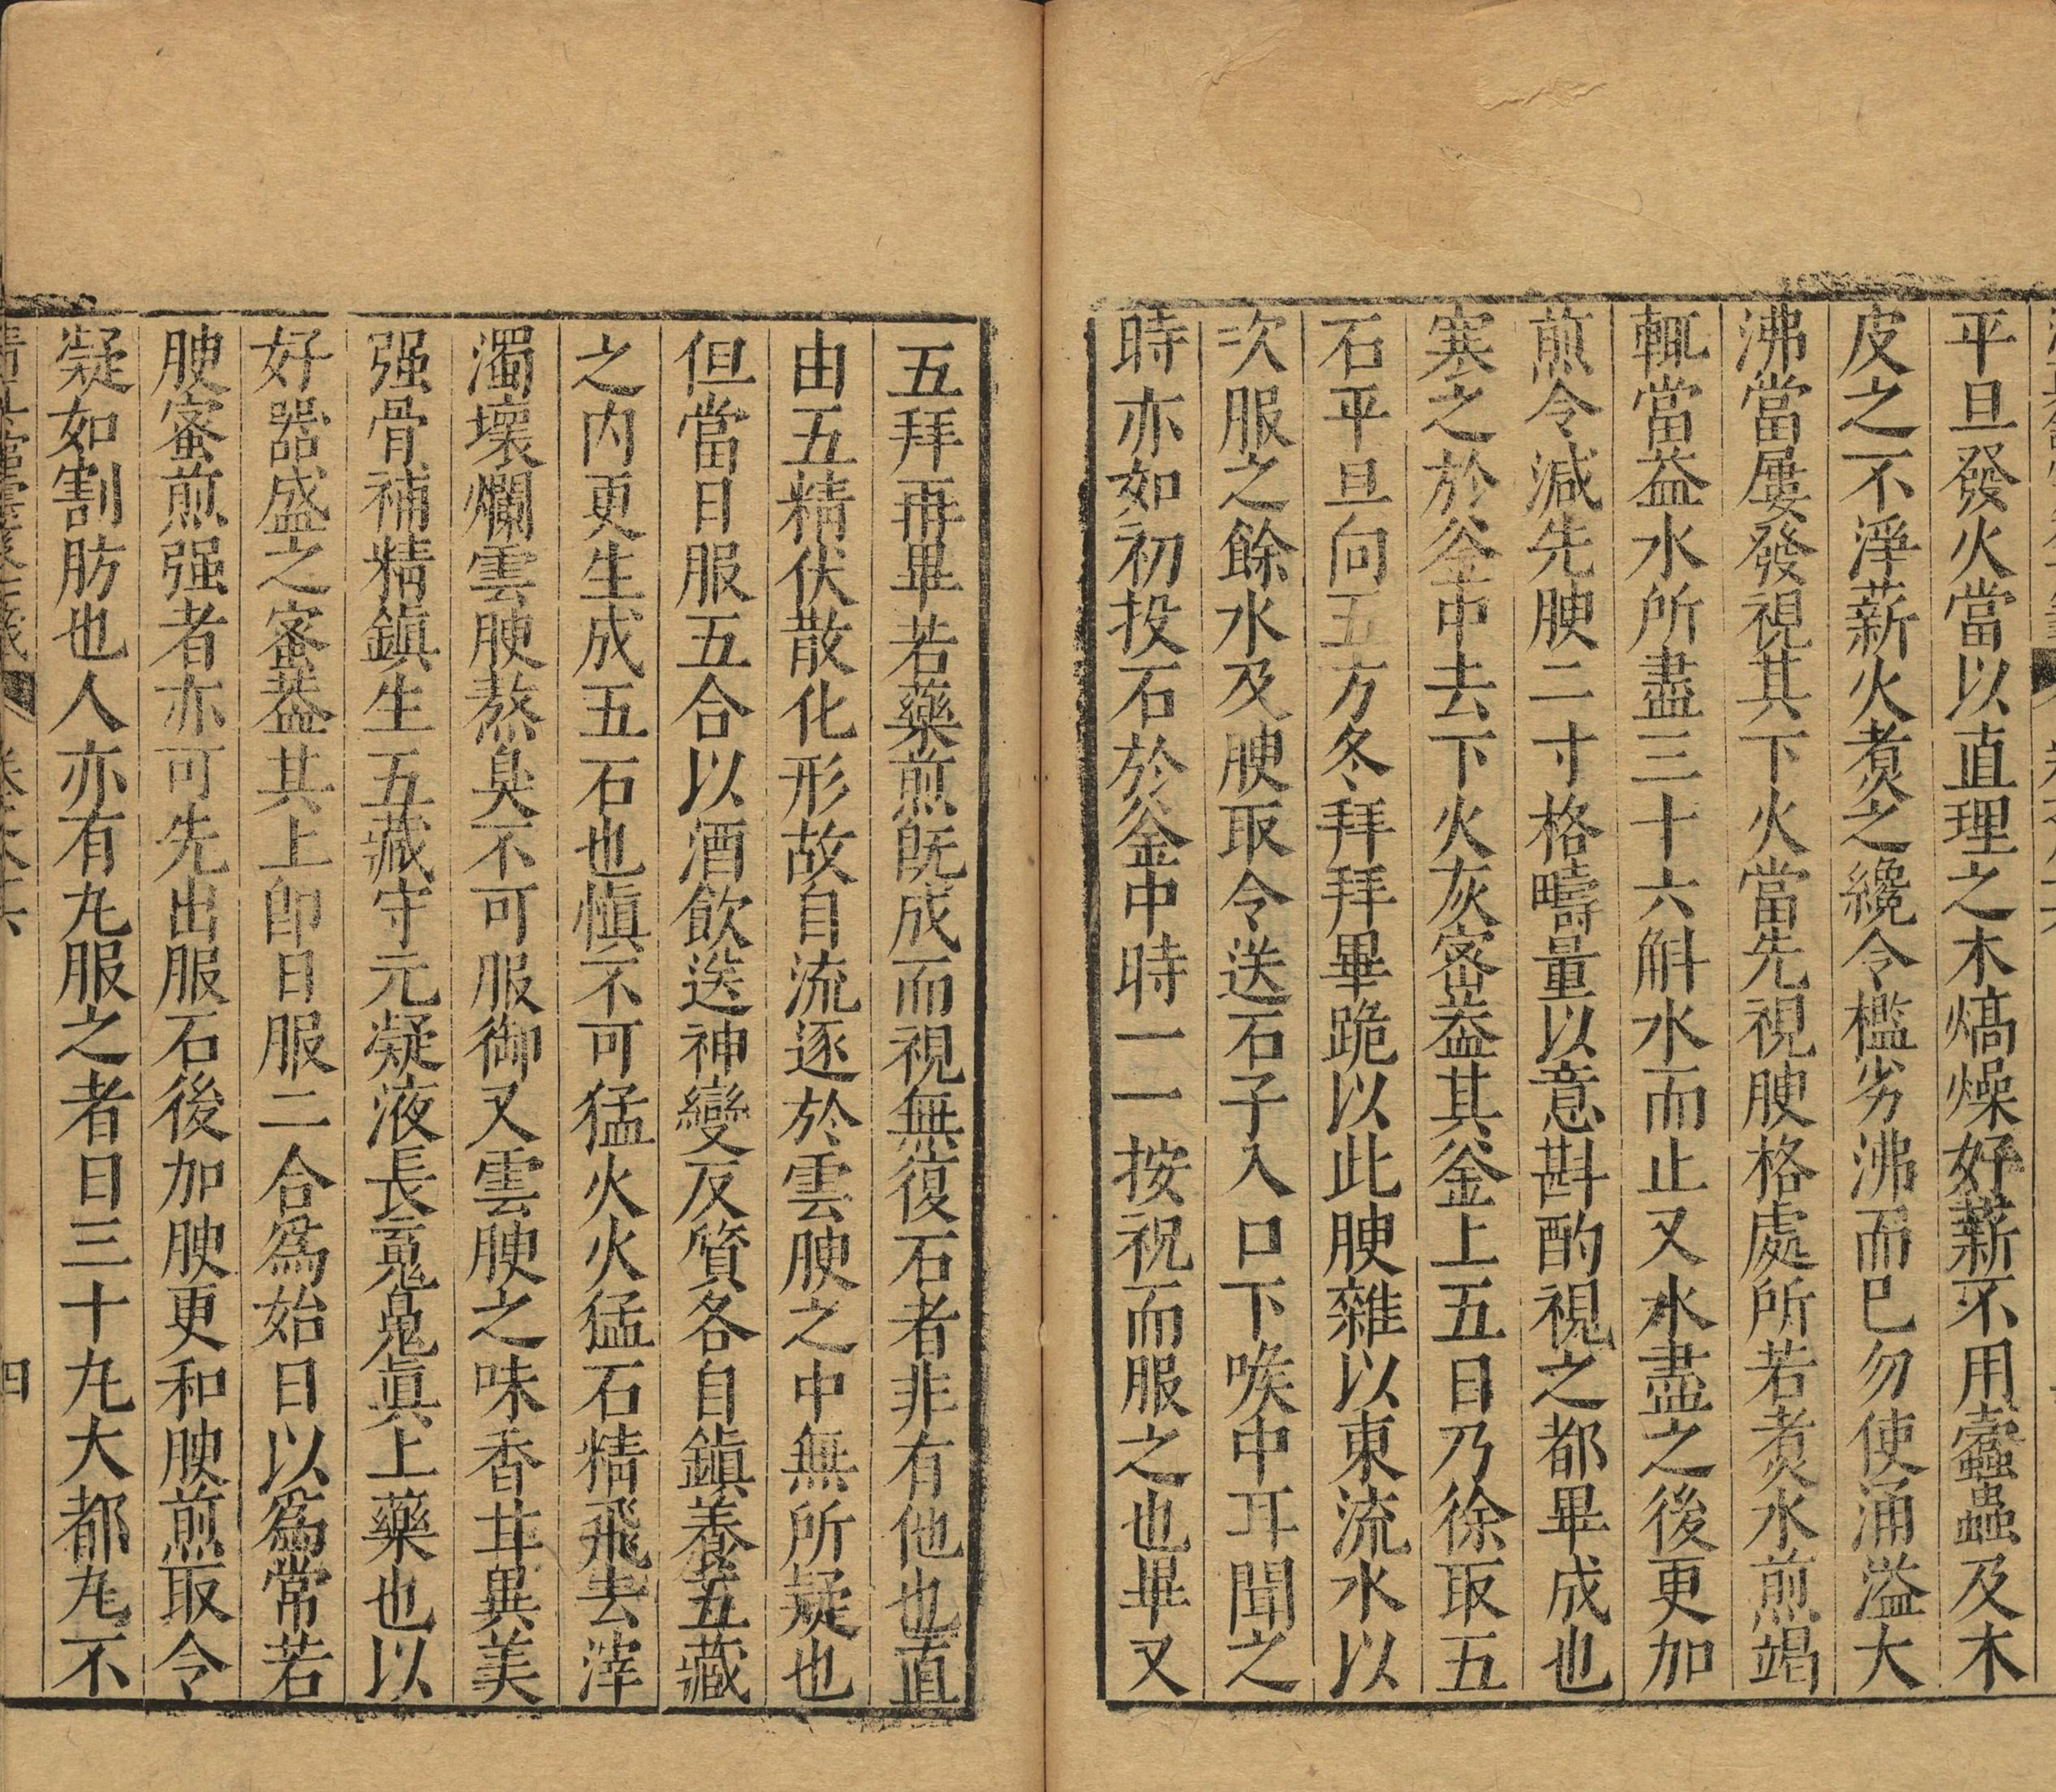 平旦發火當以直理之木熇燥好薪不用蠹蟲及木
皮之不淨薪火煑之纔令檻劣沸而已勿使涌溢大
沸當屢發視其下火當先視腴格處所若煑水煎竭
輒當益水所盡三十六斛水而止又水盡之後更加
煎令減先腴二寸格疇量以意斟酌視之都畢成也
寒之於釜中去下火灰密葢其釜上五日乃徐取五
石平旦向五方各拜拜畢跪以此腴雜以東流水以
次服之餘水及腴取令送石子入口下喉中耳聞之
時亦如初投石於釜中時一一按祝而服之也畢又
五拜再畢若藥煎既成而視無復石者非有他也直
由五精伏散化形故自流逐於雲腴之中無所疑也
但當日服五合以酒飲送神變反質各自鎭養五藏
之内更生成五石也愼不可猛火火猛石精飛去滓
濁壞爛雲腴熬臭不可服御又雲腴之味香甘異美
强骨補精鎭生五藏守元凝液長䰟䰟眞上藥也以
好器盛之密葢其上卽日服二合爲始日以爲常若
腴蜜煎强者亦可先出服石後加腴更和腴煎取令
凝如割肪也人亦有丸服之者日三十丸大都丸不
四